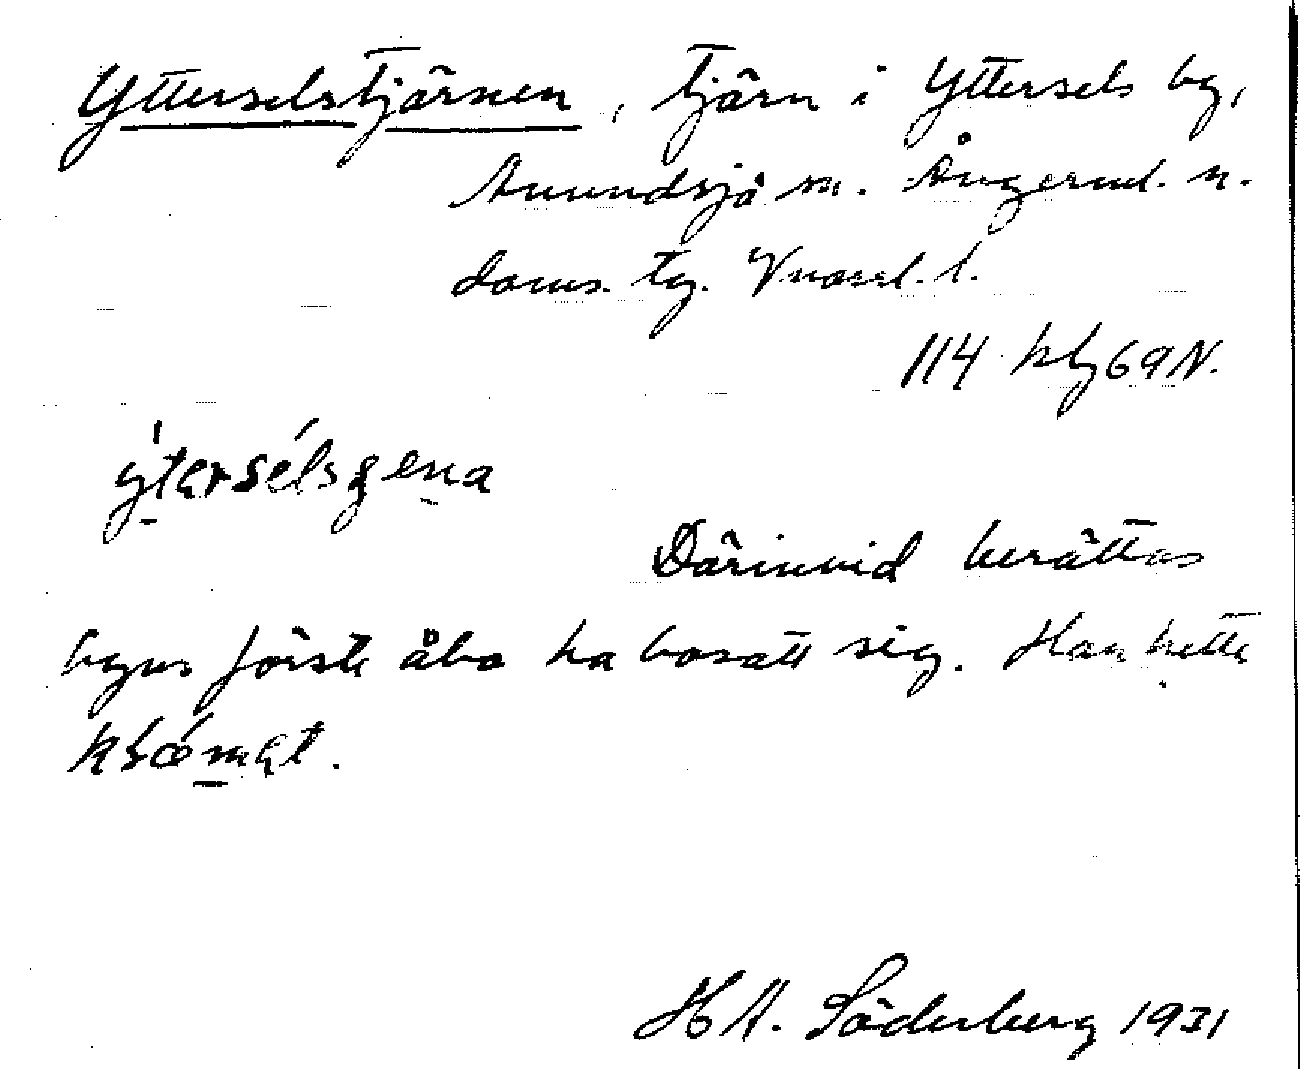 Ytterselstjärnen, tjärn i Yttersels by,
Anundsjö sn. Ångerml. n.
doms. tg. Vnorrl. l.
114 kbg 69 N.
ýtersélsgena
Därinvid berättas
byns förste åbo ha bosatt sig. Han hette
H A. Söderberg 1931